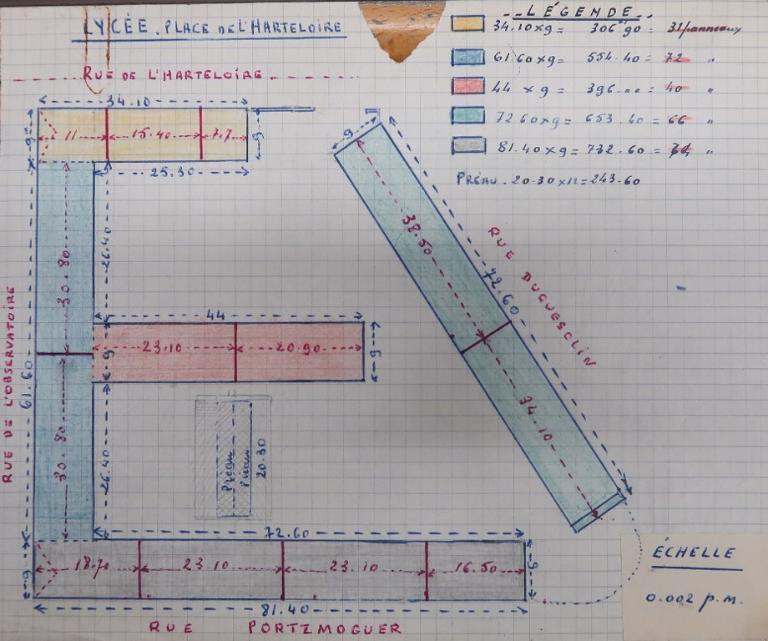 LYCÉE. PLACE DE L'HARTELOIRE
LÉGENDE
34.10 x 9 = 306.90 = 31 panneaux
61.60 x 9 = 554.40 = 72 "
44 x 9 = 396.00 = 40 "
72.60 x 9 = 653.40 = 66 "
81.40 x 9 = 732.60 = "
PRÉAU. 20.30 x 12 = 243.60
RUE DE L'HARTELOIRE.
34.10
9
11
15.40
7.7
9
25.30
9
38.50
72.60
RUE DUGUESCLIN
34.10
RUE DE L'OBSERVATOIRE
61.60
30.80
26.40
44
9
23.10
20.90
9
30.80
26.40
12
Préau
Préau
20.30
72.60
9
18.70
23.10
23.10
16.50
9
81.40
RUE PORTZMOGUER
ÉCHELLE
0.002 p.m.